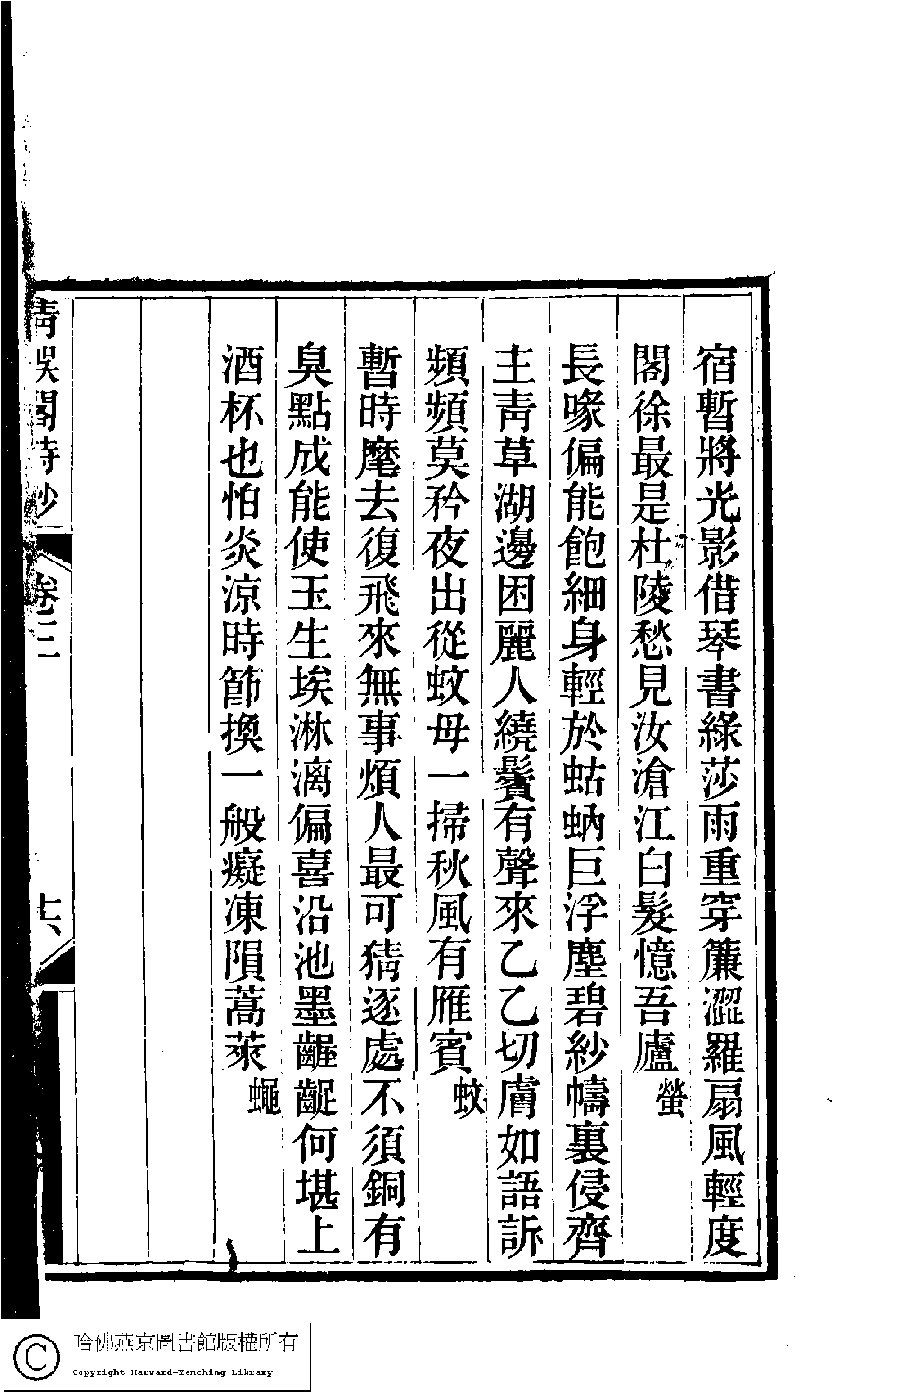 宿暫將光影借琴書綠莎雨重穿簾澀羅扇風輕度
閣徐最是杜陵愁見汝滄江白髮憶吾廬螢
長喙偏能飽細身輕於蛄蚋巨浮塵碧紗幬裏侵齊
主青草湖邊困麗人繞鬢有聲來乙乙切膚如語訴
頻頻莫矜夜出從蚊母一掃秋風有雁賓蚊
暫時麾去復飛來無事煩人最可猜逐處不須銅有
臭點成能使玉生埃淋漓偏喜沿池墨齷齪何堪上
酒杯也怕炎涼時節換一般癡凍隕蒿萊蠅
青吳閣詩鈔 卷三 十六
哈佛燕京圖書館版權所有
Copyright Harvard-Yenching Library